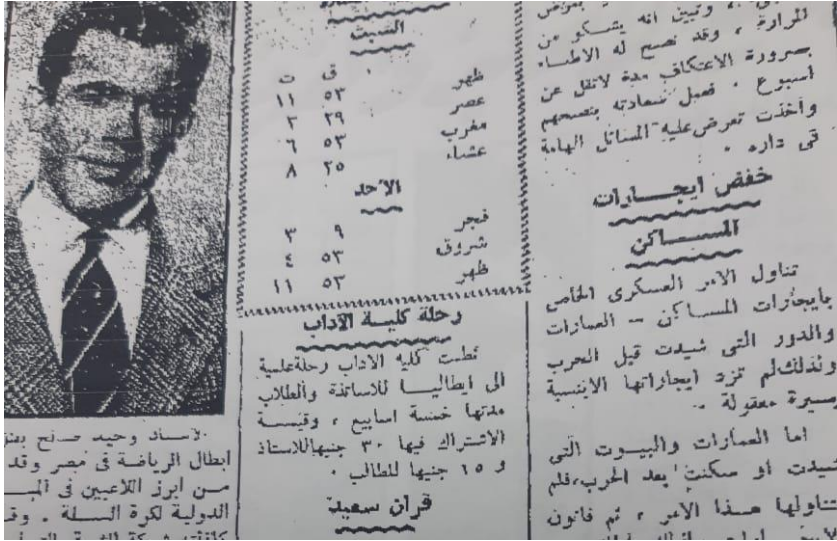 وتبين انه يشكو من
المرارة ، وقد نصح له الاطباء
بضرورة الاعتكاف مدة لاتقل عن
اسبوع ، فعمل سعادته بنصحهم
وأخذت تعرض عليه المسائل الهامة
فى داره .
خفض ايجارات
المساكن
تناول الامر العسكرى الخاص
بايجارات المساكن - العمارات
والدور التى شيدت قبل الحرب
ولذلك لم تزد ايجاراتها الا بنسبة
يسيرة معقولة .
اما العمارات والبيوت التى
شيدت أو سكنت بعد الحرب، فلم
يتناولها هذا الامر ، ثم قانون
السبت
ق ت
ظهر ٥٣ ١١
عصر ٢٩ ٣
مغرب ٥٣ ٦
عشاء ٢٥ ٨
الاحد
فجر ٩ ٣
شروق ٥٣ ٤
ظهر ٥٣ ١١
رحلة كلية الآداب
نظمت كلية الاداب رحلة علمية
الى ايطاليا للاساتذة والطلاب
مدتها خمسة اسابيع ، وقيمة
الاشتراك فيها ٣٠ جنيها للاستاذ
و ١٥ جنيها للطالب .
قران سعيد
الاستاذ وحيد صالح
ابطال الرياضة فى مصر وقد
من ابرز اللاعبين فى
الدولية لكرة السلة .